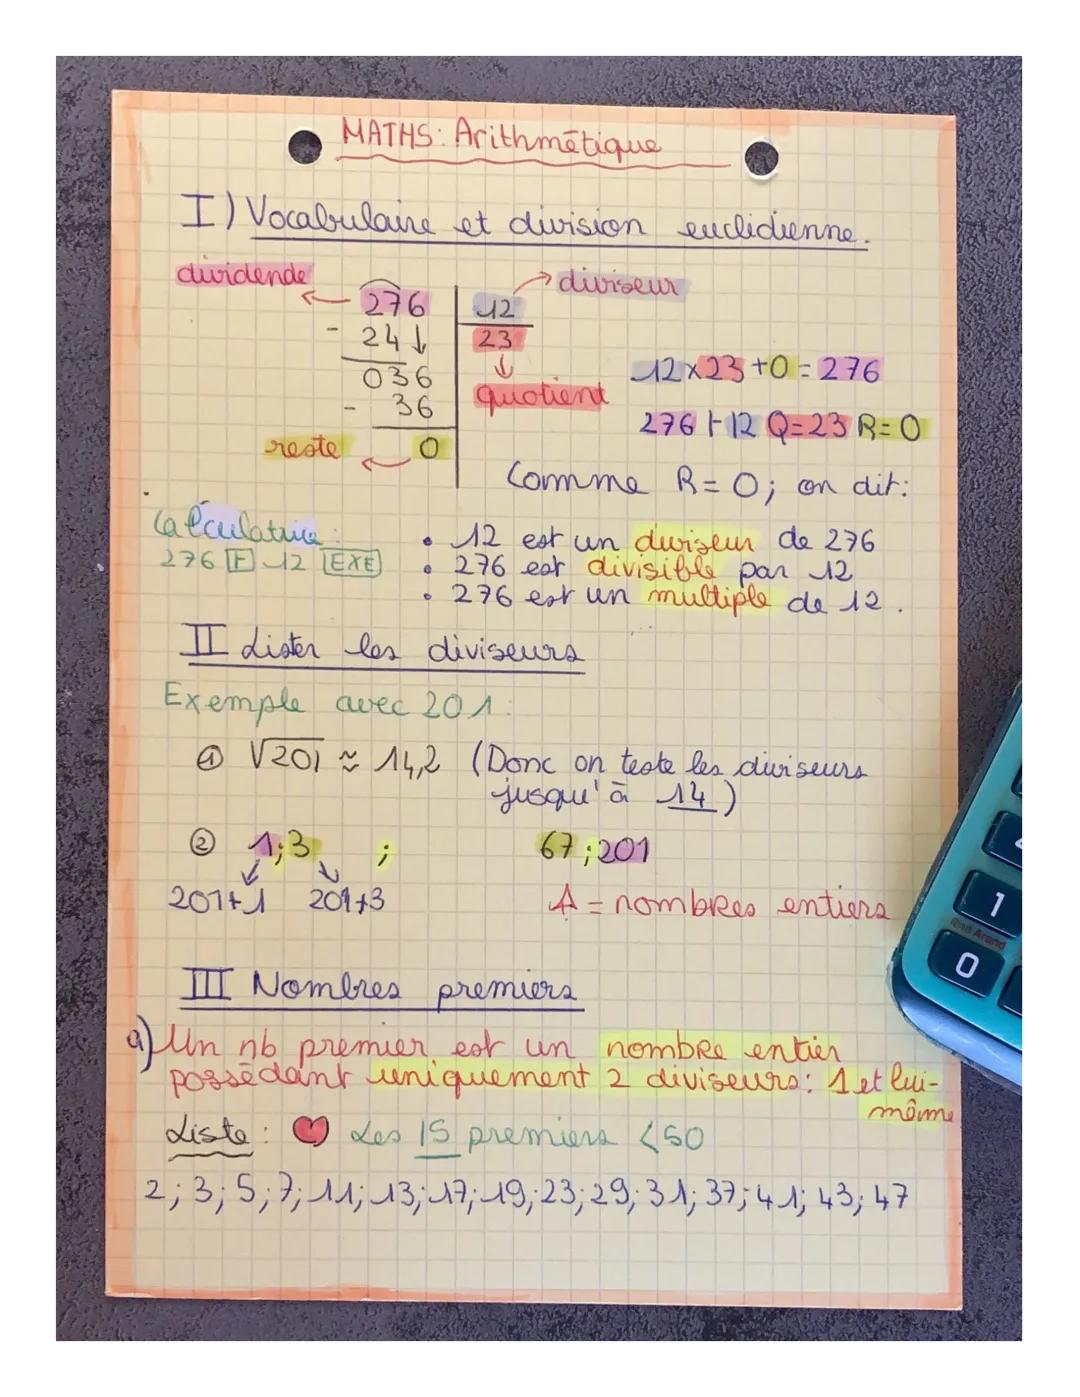 MATHS: Arithmétique
I) Vocabulaire et division euclidienne.
dividende
diviseur
276 12
- 24 23
036
quotient
- 36
reste 0
12×23+0=276
276 ⊢12 Q=23 R=0
Comme R=0; on dit:
Calculatrice:
276 ⊢ 12 EXE
• 12 est un diviseur de 276
• 276 est divisible par 12
• 276 est un multiple de 12.
II Lister les diviseurs
Exemple avec 201:
① √201 ≈ 14,2 (Donc on teste les diviseurs
jusqu'à 14)
② 1;3 ; 67;201
201⊢1 201⊢3
= nombres entiers
III Nombres premiers
a) Un nb premier est un nombre entier
possédant uniquement 2 diviseurs: 1 et lui-
même
Liste: Les 15 premiers <50
2; 3; 5; 7; 11; 13; 17; 19; 23; 29; 31; 37; 41; 43; 47
1
0